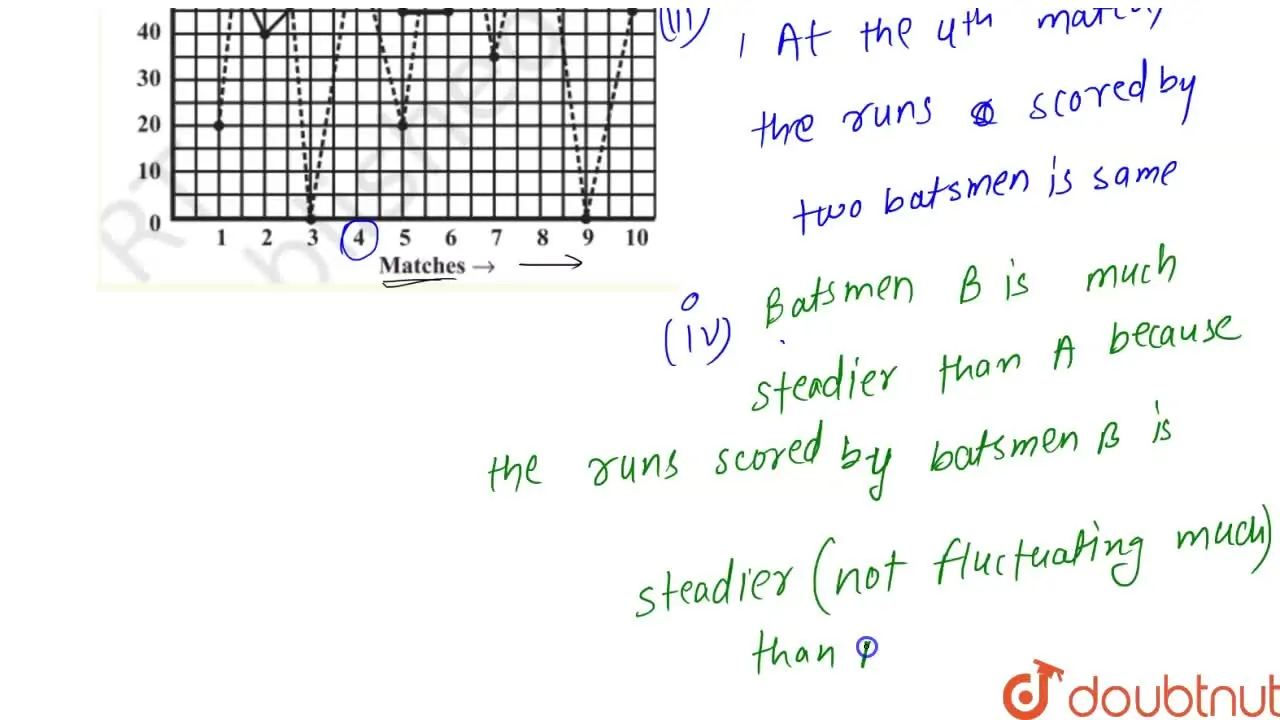 40
30
20
10
0
1 2 3 4 5 6 7 8 9 10
Matches →
(ii)
At the 4th match
the runs scored by
two batsmen is same
(iv) Batsmen B is much
steadier than A because
the runs scored by batsmen B is
steadier (not fluctuating much)
than
doubtnut